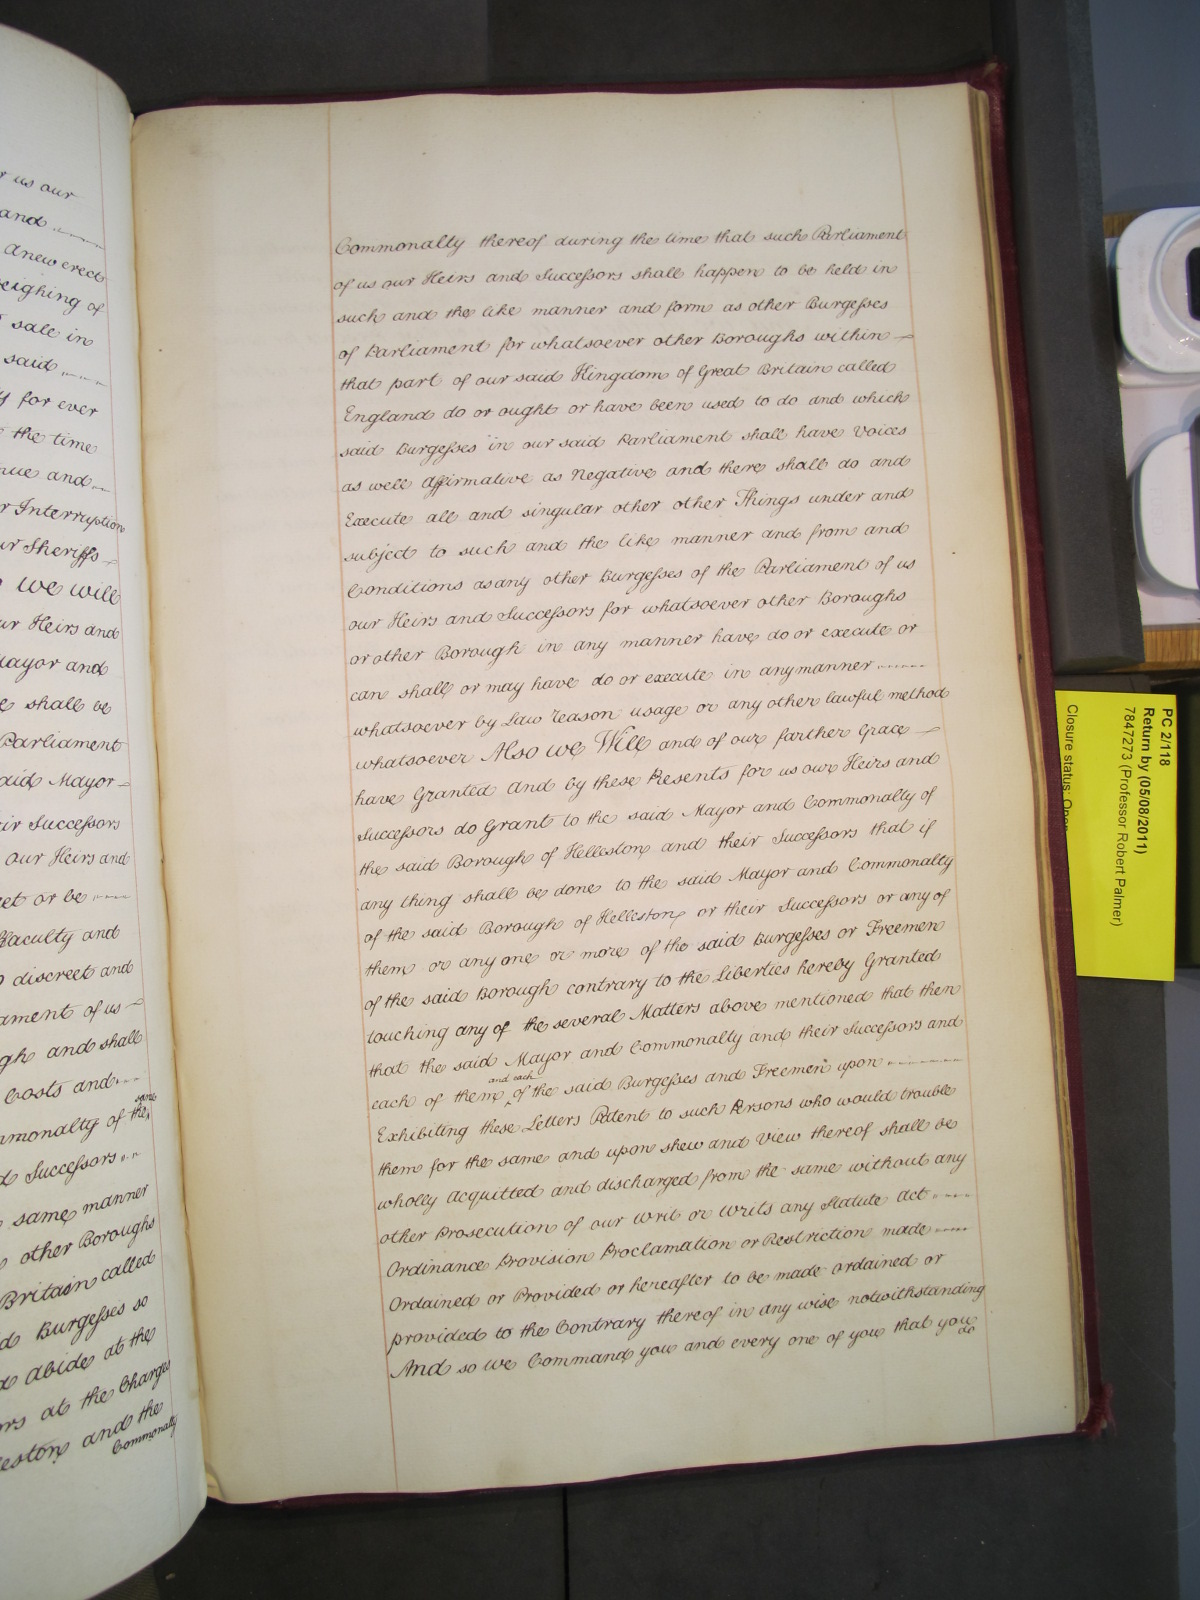 r us our
and
anew erect
eighing of
sale in
said
for ever
the time
nue and
r Interruption
ur Sheriffs
we will
ur Heirs and
Mayor and
shall be
Parliament
aid Mayor
eir Successors
our Heirs and
eet or be
Faculty and
discreet and
ament of us
gh and shall
Costs and
same
mmonalty of the
d Successors
same manner
other Boroughs
Britain called
d Burgesses so
d abide at the
ors at the Charges
eston and the
Commonalty
Commonalty thereof during the time that such Parliament
of us our Heirs and Successors shall happen to be held in
such and the like manner and form as other Burgesses
of Parliament for whatsoever other Boroughs within
that part of our said Kingdom of Great Britain called
England do or ought or have been used to do and which
said Burgesses in our said Parliament shall have Voices
as well affirmative as Negative and there shall do and
Execute all and singular other other Things under and
subject to such and the like manner and from and
Conditions as any other Burgesses of the Parliament of us
our Heirs and Successors for whatsoever other Boroughs
or other Borough in any manner have do or execute or
can shall or may have do or execute in any manner
whatsoever by Law reason usage or any other lawful method
whatsoever Also we Will and of our farther Grace
have Granted and by these Presents for us our Heirs and
Successors do Grant to the said Mayor and Commonalty of
the said Borough of Helleston and their Successors that if
any thing shall be done to the said Mayor and Commonalty
of the said Borough of Helleston or their Successors or any of
them or any one or more of the said Burgesses or Freemen
of the said Borough contrary to the Liberties hereby Granted
touching any of the several Matters above mentioned that then
that the said Mayor and Commonalty and their Successors and
and each
each of them ‸ of the said Burgesses and Freemen upon
Exhibiting these Letters Patent to such Persons who would trouble
them for the same and upon shew and view thereof shall be
wholly Acquitted and discharged from the same without any
other Prosecution of our writ or writs any Statute Act
Ordinance Provision Proclamation or Restriction made
Ordained or Provided or hereafter to be made ordained or
provided to the Contrary thereof in any wise notwithstanding
And so we Command you and every one of you that you
do
PC 2/118
Return by (05/08/2011)
7847273 (Professor Robert Palmer)
Closure status: Open